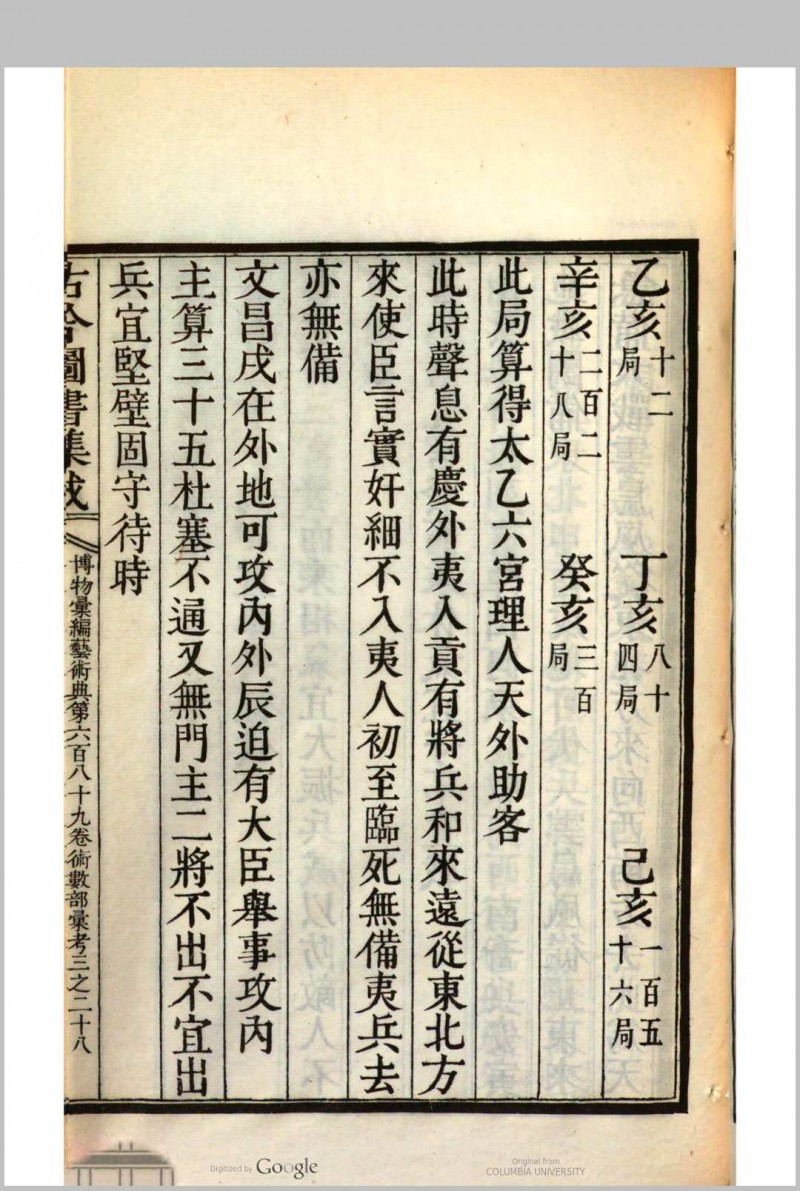 乙亥十二局　丁亥八十四局　己亥一百五十六局
辛亥二百二十八局　癸亥三百局
此局算得太乙六宮理人天外助客
此時聲息有慶外夷入貢有將兵和來遠從東北方
來使臣言實奸細不入夷人初至臨死無備夷兵去
亦無備
文昌戌在外地可攻內外辰迫有大臣舉事攻內
主算三十五杜塞不通又無門主二將不出不宜出
兵宜堅壁固守待時
古今圖書集成　博物彙編藝術典第六百八十九卷術數部彙考三之二十八
Digitized by Google
Original from
COLUMBIA UNIVERSITY